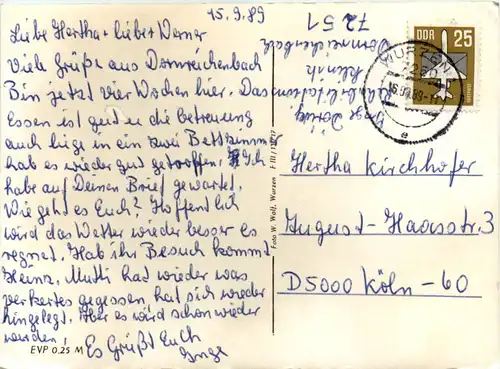 15.9.89
Liebe Hertha + lieber Werner
Viele Grüße aus Dornreichenbach
Bin jetzt vier Wochen hier. Das
Essen ist gut die Betreuung
auch liege in ein zwei Bettzimmer
hab es wieder gut getroffen. Ich
habe auf Deinen Brief gewartet.
Wie geht es Euch? Hoffentlich
wird das Wetter wieder besser es
regnet. Hab ihr Besuch kommt
Heinz. Mutti hat wieder was
verkertes gegessen, hat sich wieder
hingelegt. Aber es wird schon wieder
werden.
Es Grüßt Euch
Inge
EVP 0.25 M
Foto W. Wolf, Wurzen
Inge
Rehabilitations
Klinik
Dornreichenbach
7251
DDR 25
WURZEN
Hertha Kirchhofer
August-Haasstr. 3
D5000 Köln-60